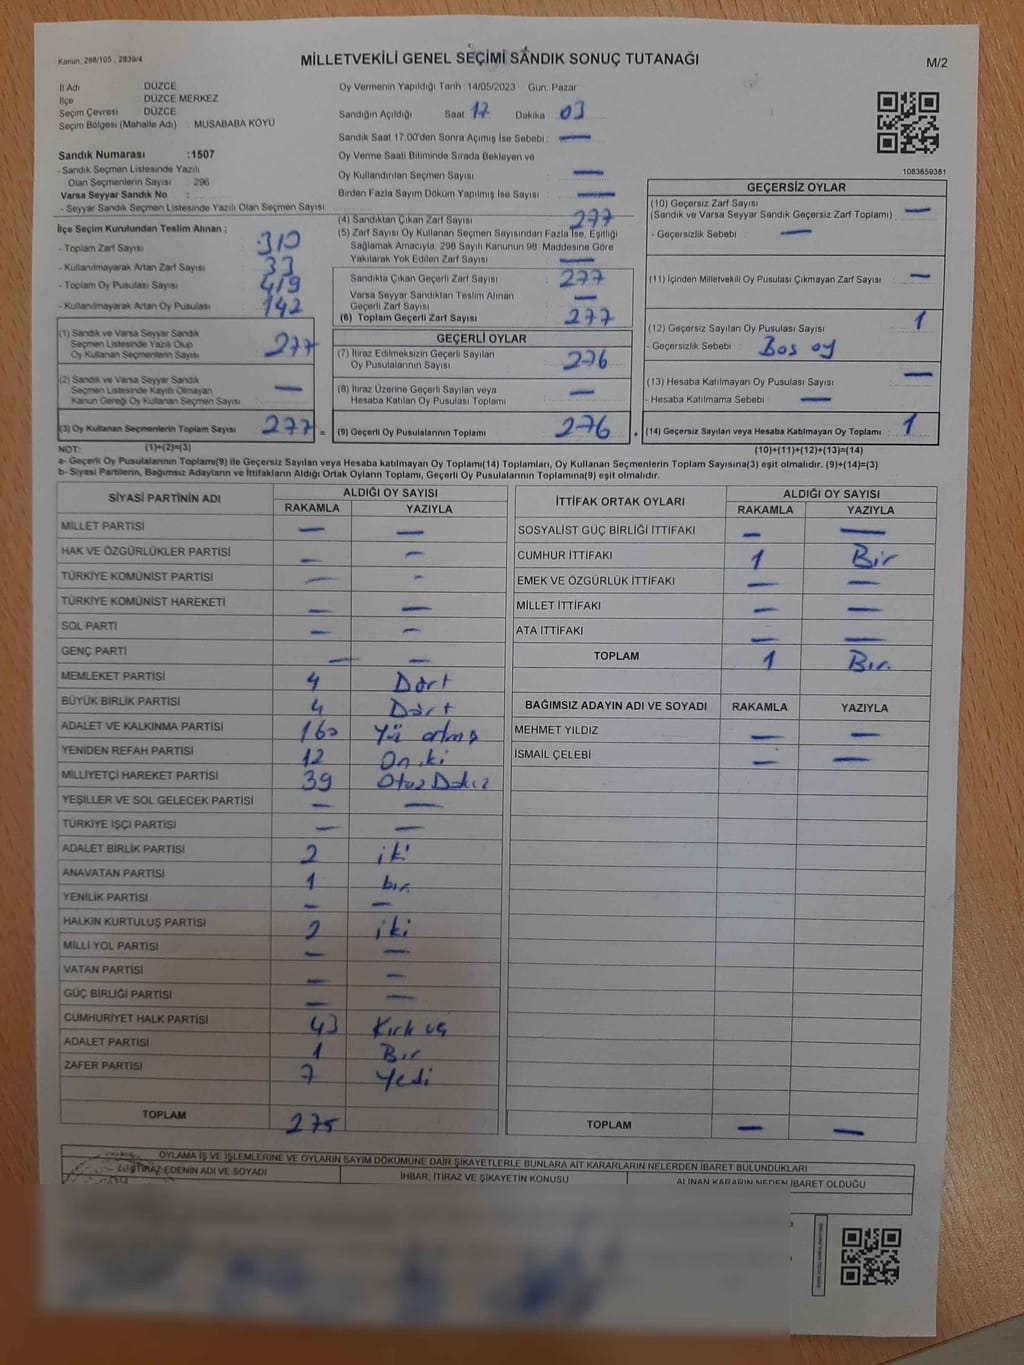 Kanun: 298/105 , 2839/4
MİLLETVEKİLİ GENEL SEÇİMİ SANDIK SONUÇ TUTANAĞI
M/2
İl Adı DÜZCE
İlçe DÜZCE MERKEZ
Seçim Çevresi DÜZCE
Seçim Bölgesi (Mahalle Adı) : MUSABABA KÖYÜ
Sandık Numarası :1507
- Sandık Seçmen Listesinde Yazılı
Olan Seçmenlerin Sayısı : 296
Varsa Seyyar Sandık No :
- Seyyar Sandık Seçmen Listesinde Yazılı Olan Seçmen Sayısı
Oy Vermenin Yapıldığı Tarih :14/05/2023 Gün: Pazar
Sandığın Açıldığı Saat: 17 Dakika : 03
Sandık Saat 17:00'den Sonra Açımış İse Sebebi : —
Oy Verme Saati Bitiminde Sırada Bekleyen ve
Oy Kullandırılan Seçmen Sayısı —
Birden Fazla Sayım Döküm Yapılmış İse Sayısı —
1083659381
İlçe Seçim Kurulundan Teslim Alınan ;
- Toplam Zarf Sayısı 310
- Kullanılmayarak Artan Zarf Sayısı 33
- Toplam Oy Pusulası Sayısı 419
- Kullanılmayarak Artan Oy Pusulası 142
(1) Sandık ve Varsa Seyyar Sandık
Seçmen Listesinde Yazılı Olup
Oy Kullanan Seçmenlerin Sayısı 277
(2) Sandık ve Varsa Seyyar Sandık
Seçmen Listesinde Kayıtlı Olmayan
Kanun Gereği Oy Kullanan Seçmen Sayısı —
(3) Oy Kullanan Seçmenlerin Toplam Sayısı 277 =
(4) Sandıktan Çıkan Zarf Sayısı 277
(5) Zarf Sayısı Oy Kullanan Seçmen Sayısından Fazla İse, Eşitliği
Sağlamak Amacıyla, 298 Sayılı Kanunun 98. Maddesine Göre
Yakılarak Yok Edilen Zarf Sayısı —
Sandıkta Çıkan Geçerli Zarf Sayısı 277
Varsa Seyyar Sandıktan Teslim Alınan
Geçerli Zarf Sayısı —
(6) Toplam Geçerli Zarf Sayısı 277
GEÇERLİ OYLAR
(7) İtiraz Edilmeksizin Geçerli Sayılan
Oy Pusulalarının Sayısı 276
(8) İtiraz Üzerine Geçerli Sayılan veya
Hesaba Katılan Oy Pusulası Toplamı —
(9) Geçerli Oy Pusulalarının Toplamı 276 +
GEÇERSİZ OYLAR
(10) Geçersiz Zarf Sayısı
(Sandık ve Varsa Seyyar Sandık Geçersiz Zarf Toplamı) —
- Geçersizlik Sebebi : —
(11) İçinden Milletvekili Oy Pusulası Çıkmayan Zarf Sayısı —
(12) Geçersiz Sayılan Oy Pusulası Sayısı 1
- Geçersizlik Sebebi : Bos oy
(13) Hesaba Katılmayan Oy Pusulası Sayısı —
- Hesaba Katılmama Sebebi : —
(14) Geçersiz Sayılan veya Hesaba Katılmayan Oy Toplamı 1
NOT: (1)+(2)=(3)
(10)+(11)+(12)+(13)=(14)
a- Geçerli Oy Pusulalarının Toplamı(9) ile Geçersiz Sayılan veya Hesaba katılmayan Oy Toplamı(14) Toplamları, Oy Kullanan Seçmenlerin Toplam Sayısına(3) eşit olmalıdır. (9)+(14)=(3)
b- Siyasi Partilerin, Bağımsız Adayların ve İttifakların Aldığı Ortak Oyların Toplamı, Geçerli Oy Pusulalarının Toplamına(9) eşit olmalıdır.
SİYASİ PARTİNİN ADI ALDIĞI OY SAYISI
RAKAMLA YAZIYLA
MİLLET PARTİSİ — —
HAK VE ÖZGÜRLÜKLER PARTİSİ — —
TÜRKİYE KOMÜNİST PARTİSİ — —
TÜRKİYE KOMÜNİST HAREKETİ — —
SOL PARTİ — —
GENÇ PARTİ — —
MEMLEKET PARTİSİ 4 Dört
BÜYÜK BİRLİK PARTİSİ 4 Dört
ADALET VE KALKINMA PARTİSİ 160 Yüz atmış
YENİDEN REFAH PARTİSİ 12 On iki
MİLLİYETÇİ HAREKET PARTİSİ 39 Otuz Dokuz
YEŞİLLER VE SOL GELECEK PARTİSİ — —
TÜRKİYE İŞÇİ PARTİSİ — —
ADALET BİRLİK PARTİSİ 2 iki
ANAVATAN PARTİSİ 1 bir
YENİLİK PARTİSİ — —
HALKIN KURTULUŞ PARTİSİ 2 iki
MİLLİ YOL PARTİSİ — —
VATAN PARTİSİ — —
GÜÇ BİRLİĞİ PARTİSİ — —
CUMHURİYET HALK PARTİSİ 43 Kırk üç
ADALET PARTİSİ 1 Bir
ZAFER PARTİSİ 7 Yedi
TOPLAM 275
İTTİFAK ORTAK OYLARI ALDIĞI OY SAYISI
RAKAMLA YAZIYLA
SOSYALİST GÜÇ BİRLİĞİ İTTİFAKI — —
CUMHUR İTTİFAKI 1 Bir
EMEK VE ÖZGÜRLÜK İTTİFAKI — —
MİLLET İTTİFAKI — —
ATA İTTİFAKI — —
TOPLAM 1 Bir.
BAĞIMSIZ ADAYIN ADI VE SOYADI RAKAMLA YAZIYLA
MEHMET YILDIZ — —
İSMAİL ÇELEBİ — —
TOPLAM — —
OYLAMA İŞ VE İŞLEMLERİNE VE OYLARIN SAYIM DÖKÜMÜNE DAİR ŞİKAYETLERLE BUNLARA AİT KARARLARIN NELERDEN İBARET BULUNDUKLARI
İTİRAZ EDENİN ADI VE SOYADI
İHBAR, İTİRAZ VE ŞİKAYETİN KONUSU
ALINAN KARARIN NEDEN İBARET OLDUĞU